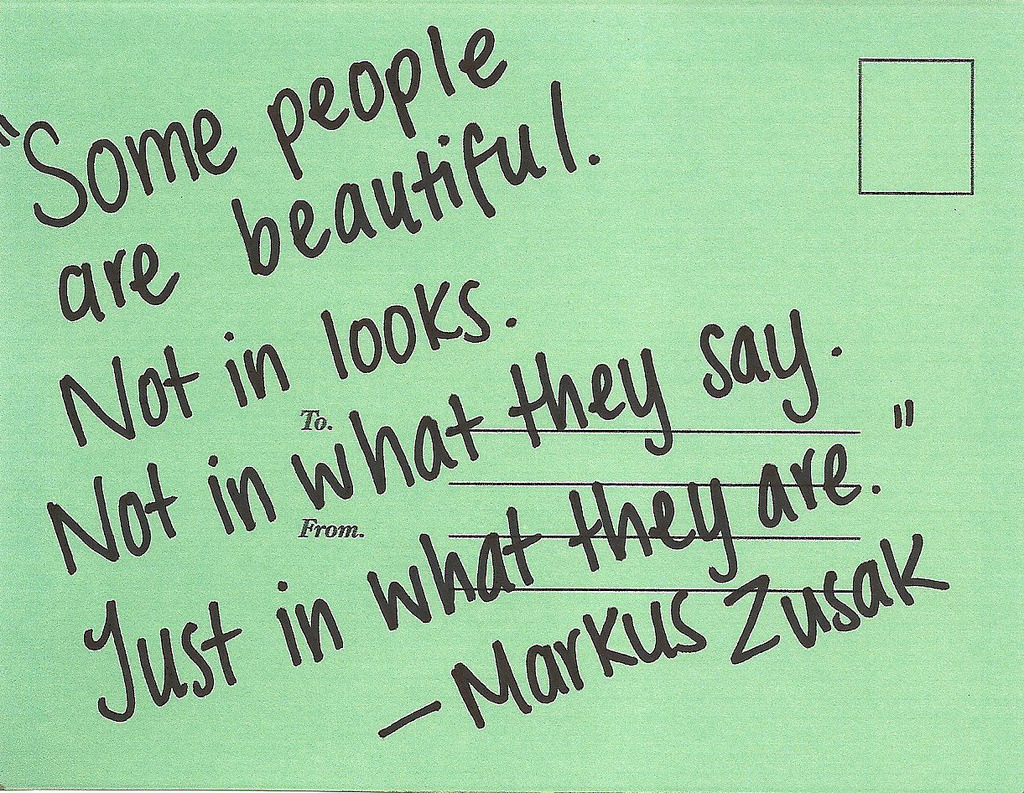 "Some people
are beautiful.
Not in looks.
Not in what they say.
Just in what they are."
—Markus Zusak
To.
From.